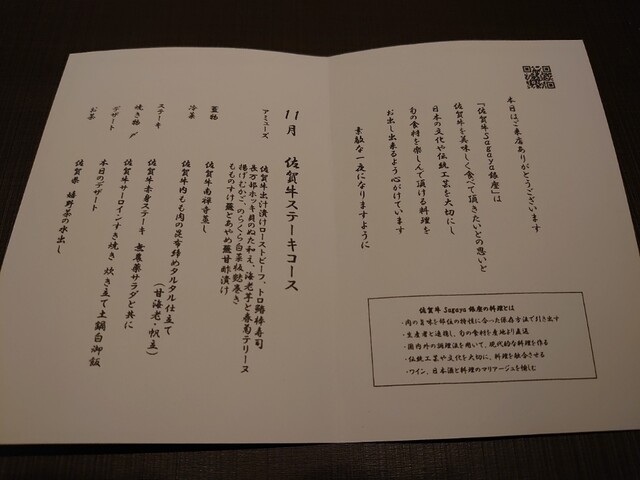 本日はご来店ありがとうございます
『佐賀牛Sagaya銀座』は
佐賀牛を美味しく食べて頂きたいとの思いと
日本の文化や伝統工芸を大切にし
旬の食材を楽しんで頂ける料理を
お出し出来るよう心がけています
素敵な一夜になりますように
佐賀牛 Sagaya 銀座の料理とは
・肉の旨味を部位の特性に合った保存方法で引き出す
・生産者と連携し、旬の食材を産地より直送
・国内外の調理法を用いて、現代的な料理を作る
・伝統工芸や文化を大切に、料理を融合させる
・ワイン、日本酒と料理のマリアージュを愉しむ
11月 佐賀牛ステーキコース
アミューズ
佐賀牛出汁漬けローストビーフ、トロ鯖棒寿司
長万部ホッキ貝のぬた和え、海老芋と春菊テリーヌ
揚げむかご、のらくら白菜板麩巻き
もものすけ蕪とあやめ蕪甘酢漬け
蓋物 佐賀牛南禅寺蒸し
冷菜 佐賀牛内もも肉の昆布締めタルタル仕立て
(甘海老・帆立)
ステーキ 佐賀牛赤身ステーキ 無農薬サラダと共に
焼き物〆 佐賀牛サーロインすき焼き 炊き立て土鍋白御飯
デザート 本日のデザート
お茶 佐賀県 嬉野茶の水出し